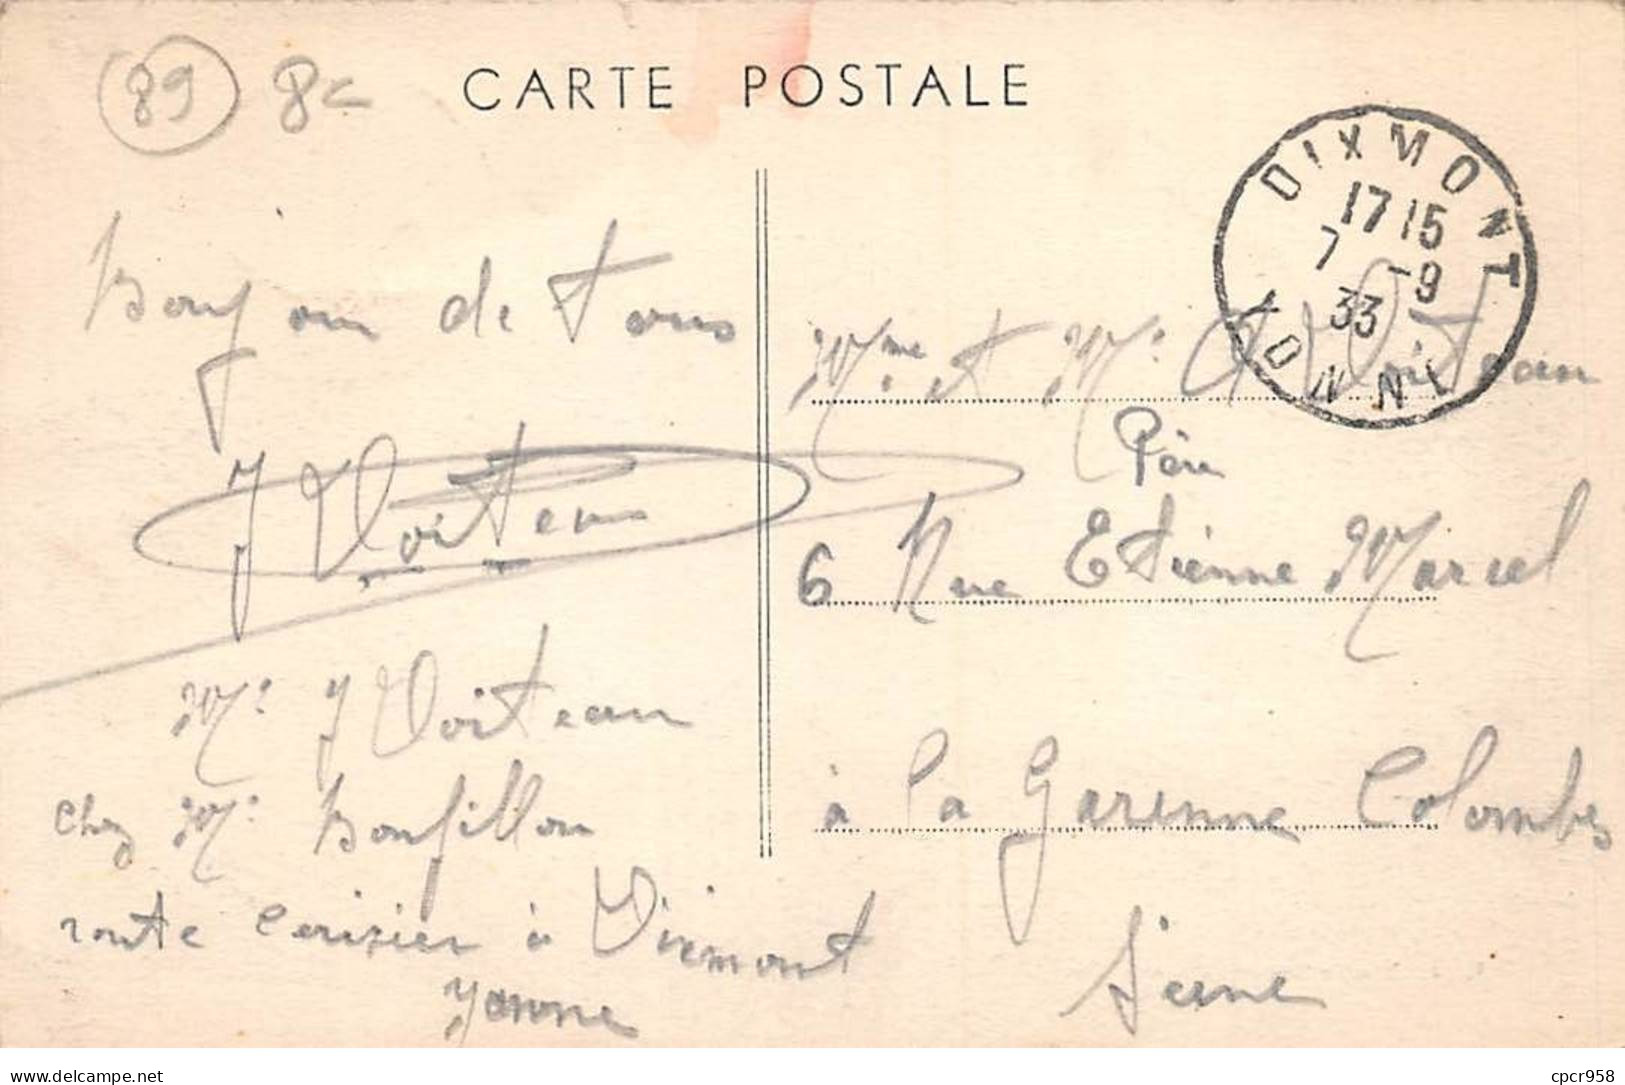 89 8€
CARTE POSTALE
DIXMONT
17 15
7 -9
33
YONNE
Bonjour de tous
J Voiteau
Mr J Voiteau
chez Mr Bonfillou
route Cerisier à Dixmont
Yonne
Mme et Mr A Voiteau
Père
6 Rue Etienne Marcel
à la Garenne Colombes
Seine
delcampe.net
cpcr958